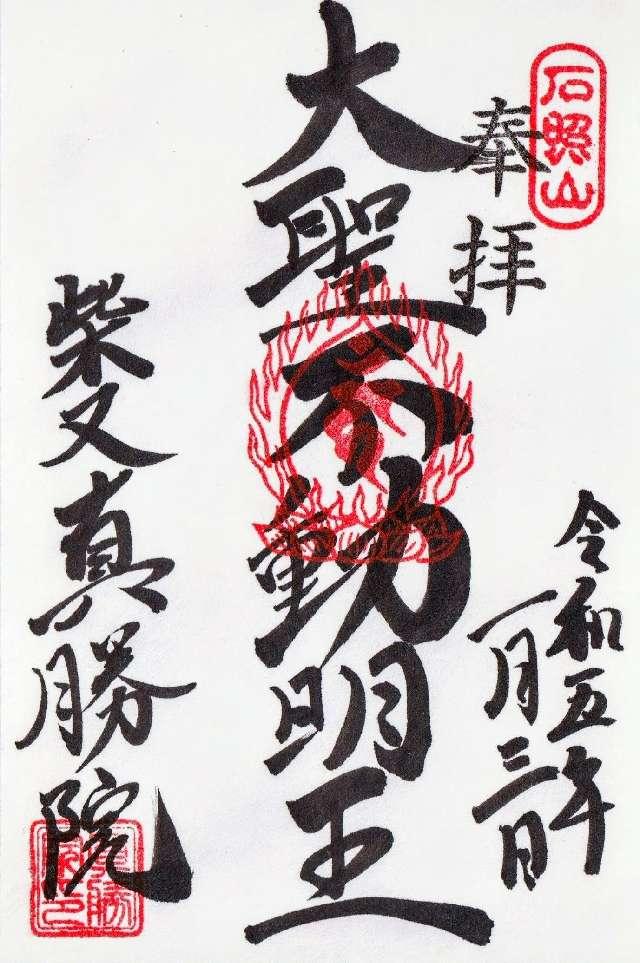 石照山
奉拝
令和五年
一月三日
大聖不動明王
柴又真勝院